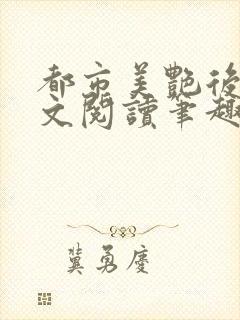 都市美艷後
文閱讀筆趣
冀勇慶